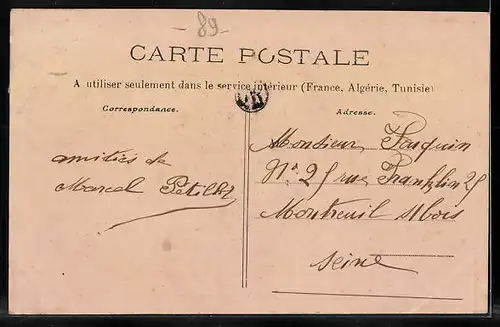 89
CARTE POSTALE
A utiliser seulement dans le service intérieur (France, Algérie, Tunisie)
Correspondance.
Adresse.
amitiés de
Marcel
Monsieur Pasquin
N° 25 rue Franklin 25
Montreuil s/bois
Seine